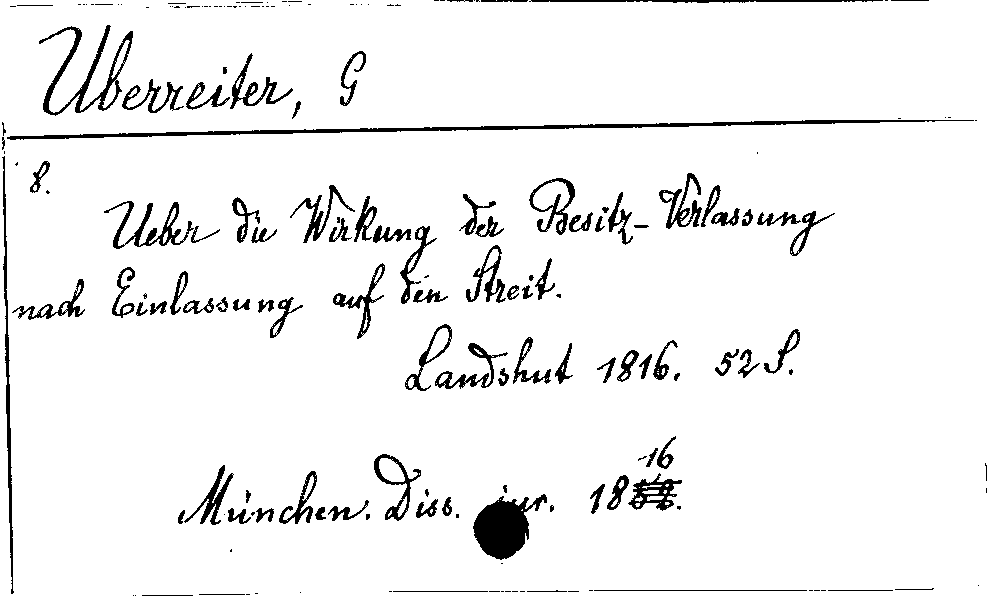 Uberreiter, G
8.
Ueber die Wirkung der Besitz-Verlassung
nach Einlassung auf den Streit.
Landshut 1816. 52 S.
16
München. Diss. jur. 1852.